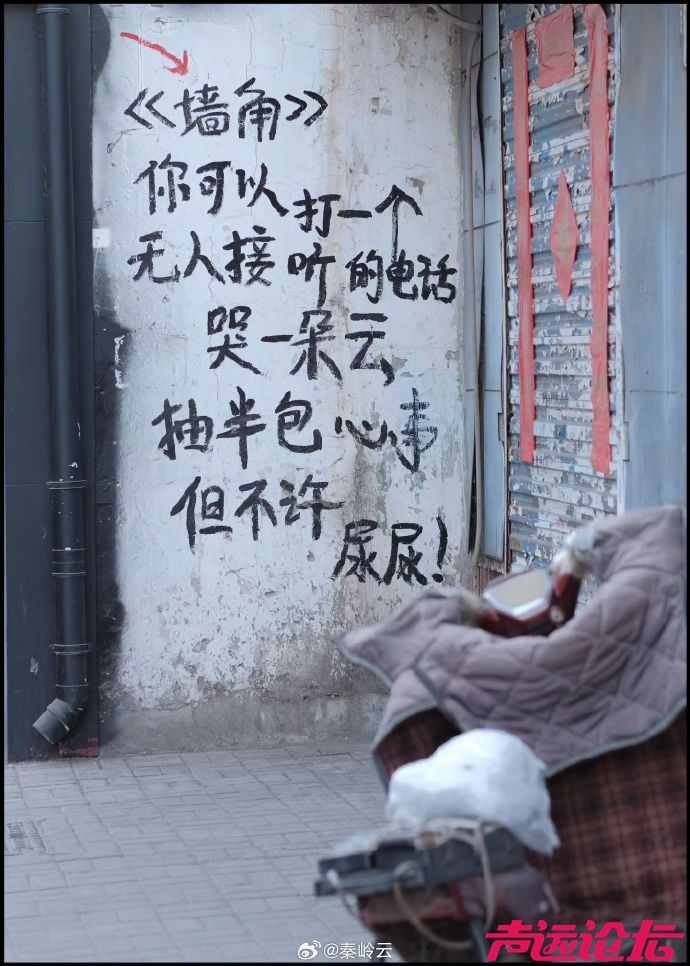 《墙角》
你可以打一个
无人接听的电话
哭一朵云,
抽半包心事
但不许
尿尿!
@秦岭云
声远论坛